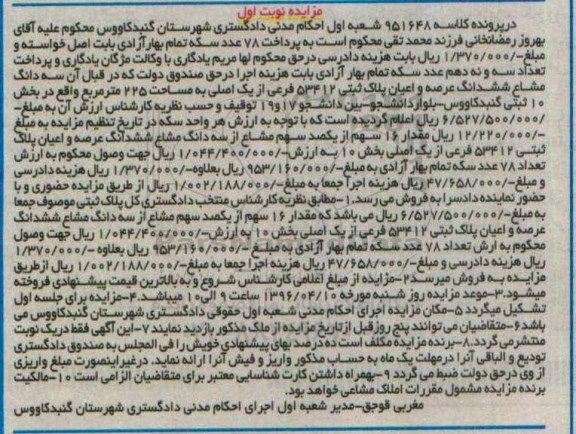 مزایده نوبت اول
درپرونده کلاسه ۹۵۱۶۴۸ شعبه اول احکام مدنی دادگستری شهرستان گنبدکاووس محکوم علیه آقای
بهروز رمضانخانی فرزند محمد تقی محکوم است به پرداخت ۷۸ عدد سکه تمام بهار آزادی بابت اصل خواسته و
مبلغ-/۱/۳۷۰/۰۰۰ ریال بابت هزینه دادرسی درحق محکوم لها مریم یادگاری با وکالت مژگان یادگاری و پرداخت
تعداد سه و نه دهم عدد سکه تمام بهار آزادی بابت هزینه اجرا درحق صندوق دولت که در قبال آن سه دانگ
مشاع ششدانگ عرصه و اعیان پلاک ثبتی ۵۳۴۱۲ فرعی از یک اصلی به مساحت ۲۲۵ مترمربع واقع در بخش
۱۰ ثبتی گنبدکاووس-بلوار دانشجو-بین دانشجو ۱۷و۱۹ توقیف و حسب نظریه کارشناس ارزش آن به مبلغ-
/۶/۵۲۷/۵۰۰/۰۰۰ ریال اعلام گردیده است که با توجه به ارزش هر واحد سکه در تاریخ تنظیم مزایده به مبلغ
-/۱۲/۲۲۰/۰۰۰ ریال مقدار ۱۶ سهم از یکصد سهم مشاع از سه دانگ مشاع ششدانگ عرصه و اعیان پلاک
ثبتی ۵۳۴۱۲ فرعی از یک اصلی بخش ۱۰ به ارزش-/۱/۰۴۴/۴۰۰/۰۰۰ ریال جهت وصول محکوم به ارزش
تعداد ۷۸ عدد سکه تمام بهار آزادی به مبلغ-/۹۵۳/۱۶۰/۰۰۰ ریال بعلاوه-/۱/۳۷۰/۰۰۰ ریال هزینه دادرسی
و مبلغ-/۴۷/۶۵۸/۰۰۰ ریال هزینه اجرا جمعا به مبلغ-/۱/۰۰۲/۱۸۸/۰۰۰ ریال از طریق مزایده حضوری و با
حضور نماینده دادسرا به فروش می رسد.۱-مطابق نظریه کارشناس منتخب دادگستری کل پلاک ثبتی موصوف جمعا
به مبلغ-/۶/۵۲۷/۵۰۰/۰۰۰ ریال می باشد که مقدار ۱۶ سهم از یکصد سهم مشاع از سه دانگ مشاع ششدانگ
عرصه و اعیان پلاک ثبتی ۵۳۴۱۲ فرعی از یک اصلی بخش ۱۰ به ارزش-/۱/۰۴۴/۴۰۰/۰۰۰ ریال جهت وصول
محکوم به ارش تعداد ۷۸ عدد سکه تمام بهار آزادی به مبلغ-/۹۵۳/۱۶۰/۰۰۰ ریال بعلاوه-/۱/۳۷۰/۰۰۰
ریال هزینه دادرسی و مبلغ-/۴۷/۶۵۸/۰۰۰ ریال هزینه اجرا جمعا به مبلغ-/۱/۰۰۲/۱۸۸/۰۰۰ ریال ازطریق
مزایده به فروش میرسد ۲-مزایده از مبلغ اعلامی کارشناس شروع و به بالاترین قیمت پیشنهادی فروخته
میشود.۳-موعد مزایده روز شنبه مورخه ۱۳۹۶/۰۴/۱۰ ساعت ۹ الی۱۰ میباشد.۴-مزایده برای جلسه اول
تشکیل میگردد ۵-مکان مزایده اجرای احکام مدنی شعبه اول حقوقی دادگستری شهرستان گنبدکاووس می
باشد ۶-متقاضیان می توانند پنج روزقبل از تاریخ مزایده از ملک مذکور بازدید نمایند ۷-این آگهی فقط دریک نوبت
منتشر می گردد.۸-برنده مزایده مکلف است ده درصد بهای پیشنهادی خویش را فی المجلس به صندوق دادگستری
تودیع و الباقی آنرا درمهلت یک ماه به حساب مذکور واریز و فیش آنرا ارائه نماید. درغیراینصورت مبلغ واریزی
از وی درحق دولت ضبط می گردد ۹-بهمراه داشتن کارت شناسایی معتبر برای متقاضیان الزامی است ۱۰-مالکیت
برنده مزایده مشمول مقررات املاک مشاعی خواهد بود.
مغربی قوجق-مدیر شعبه اول اجرای احکام مدنی دادگستری شهرستان گنبدکاووس